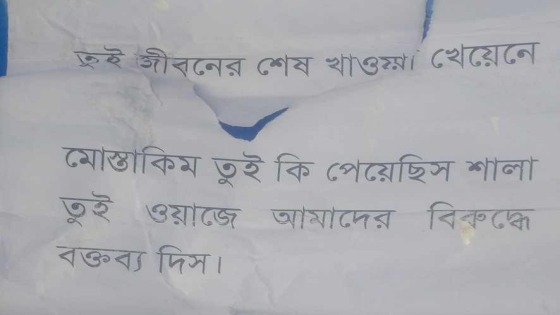 তুই জীবনের শেষ খাওয়া খেয়েনে
মোস্তাকিম তুই কি পেয়েছিস শালা
তুই ওয়াজে আমাদের বিরুদ্ধে
বক্তব্য দিস।